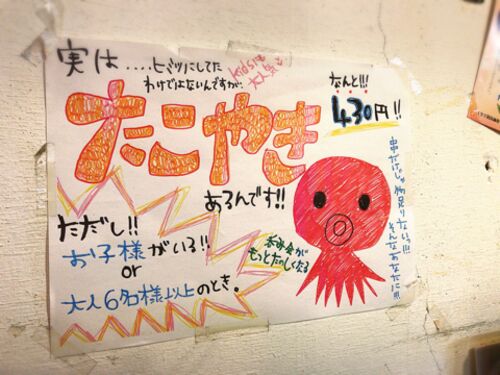 実は....ヒミツにしてた
わけではないんですが、
kidsにも
大人気
なんと!!!
430円!!
たこやき
あるんです!!
ただし!!
お子様がいる!!
or
大人6名様以上のとき。
飲み会が
もっとたのしくなる
物足りないっ!!!
そんなあなたに!!!